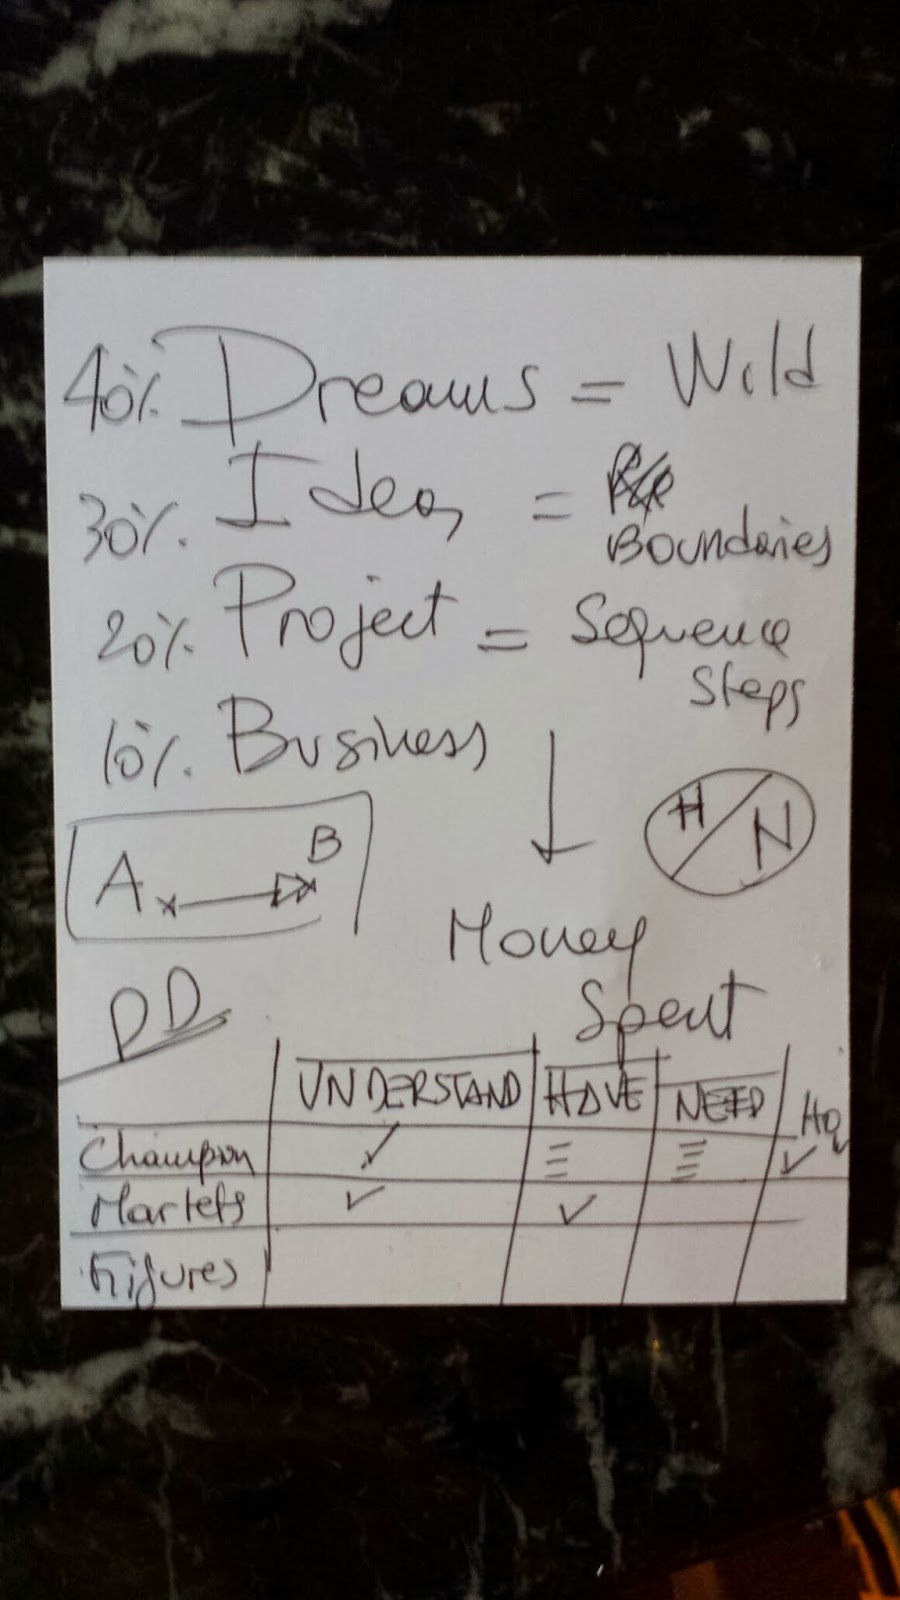 40% Dreams = Wild
30% Idea, =
Boundaries
20% Project = Sequence
Steps
10% Business
H/N
A B
Money
Spent
DD
UNDERSTAND HAVE NEED
Champion ✓ ✓
Markets ✓ ✓
Figures